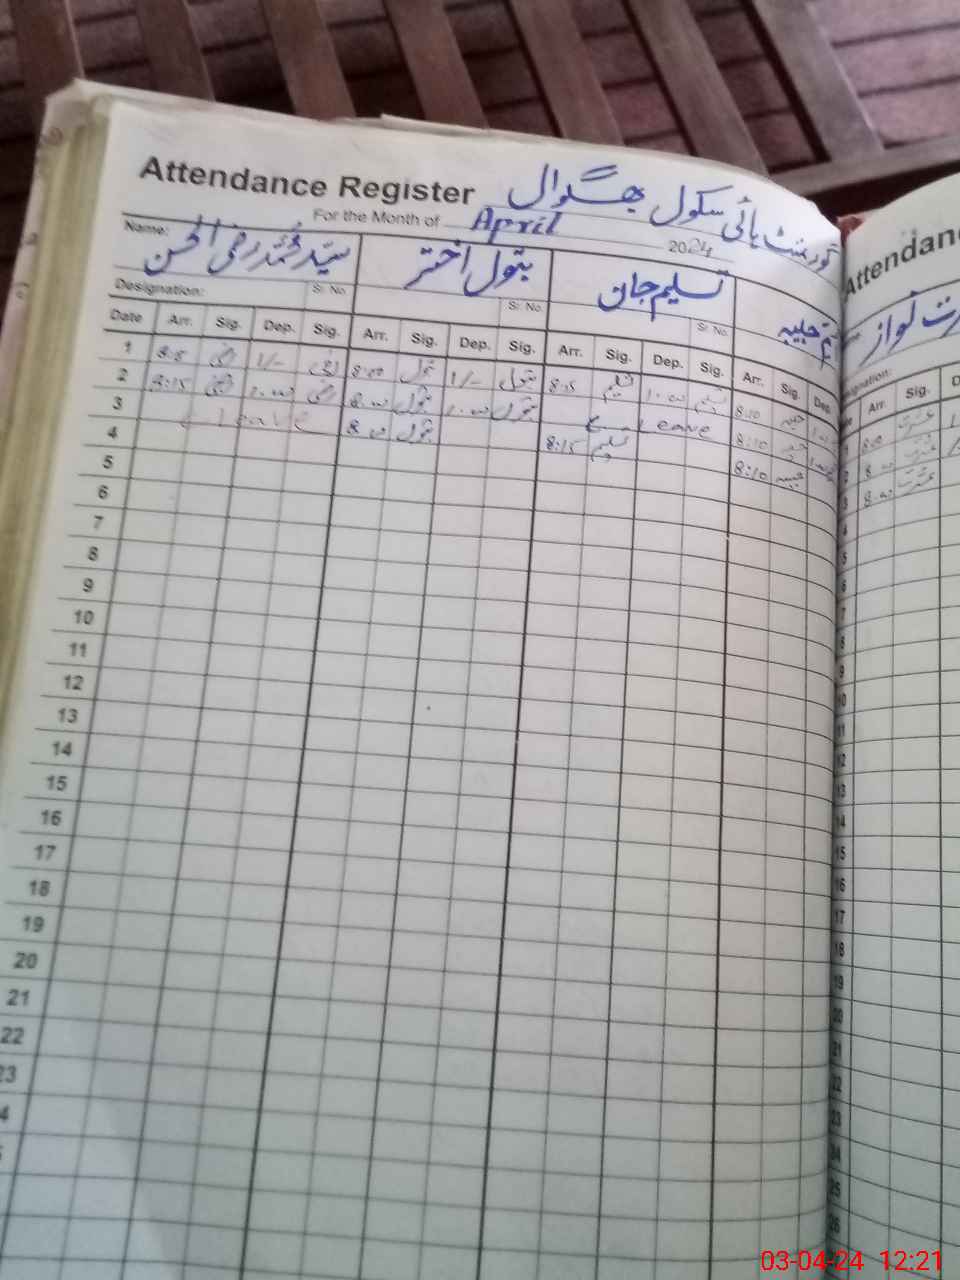 گورنمنٹ ہائی سکول بھگوال
Attendance Register
For the Month of April 2024
Name: سید محمد رضی الحسن بتول اختر تسلیم جان
Designation: Sr. No. Sr. No. Sr. No.
Date Arr. Sig. Dep. Sig. Arr. Sig. Dep. Sig. Arr. Sig. Dep. Sig. Arr. Sig. Dep.
1 8:5 رضی 1/- رضی 8:00 بتول 1/- بتول 8:15 تسلیم 1:00 تسلیم 8:10 حبیبہ
2 8:15 رضی 1:00 رضی 8:00 بتول 1:00 بتول Leave 8:10 حبیبہ
3 Leave 8:00 بتول 8:15 تسلیم 8:10 حبیبہ
4
5
6
7
8
9
10
11
12
13
14
15
16
17
18
19
20
21
22
23
Attendan
رت نواز
ignation:
Arr. Sig. D
8:00 عشرت
8:00 عشرت
8:00 عشرت
4
5
6
7
8
9
10
11
12
13
14
15
16
17
18
19
20
21
22
23
24
25
26
03-04-24 12:21